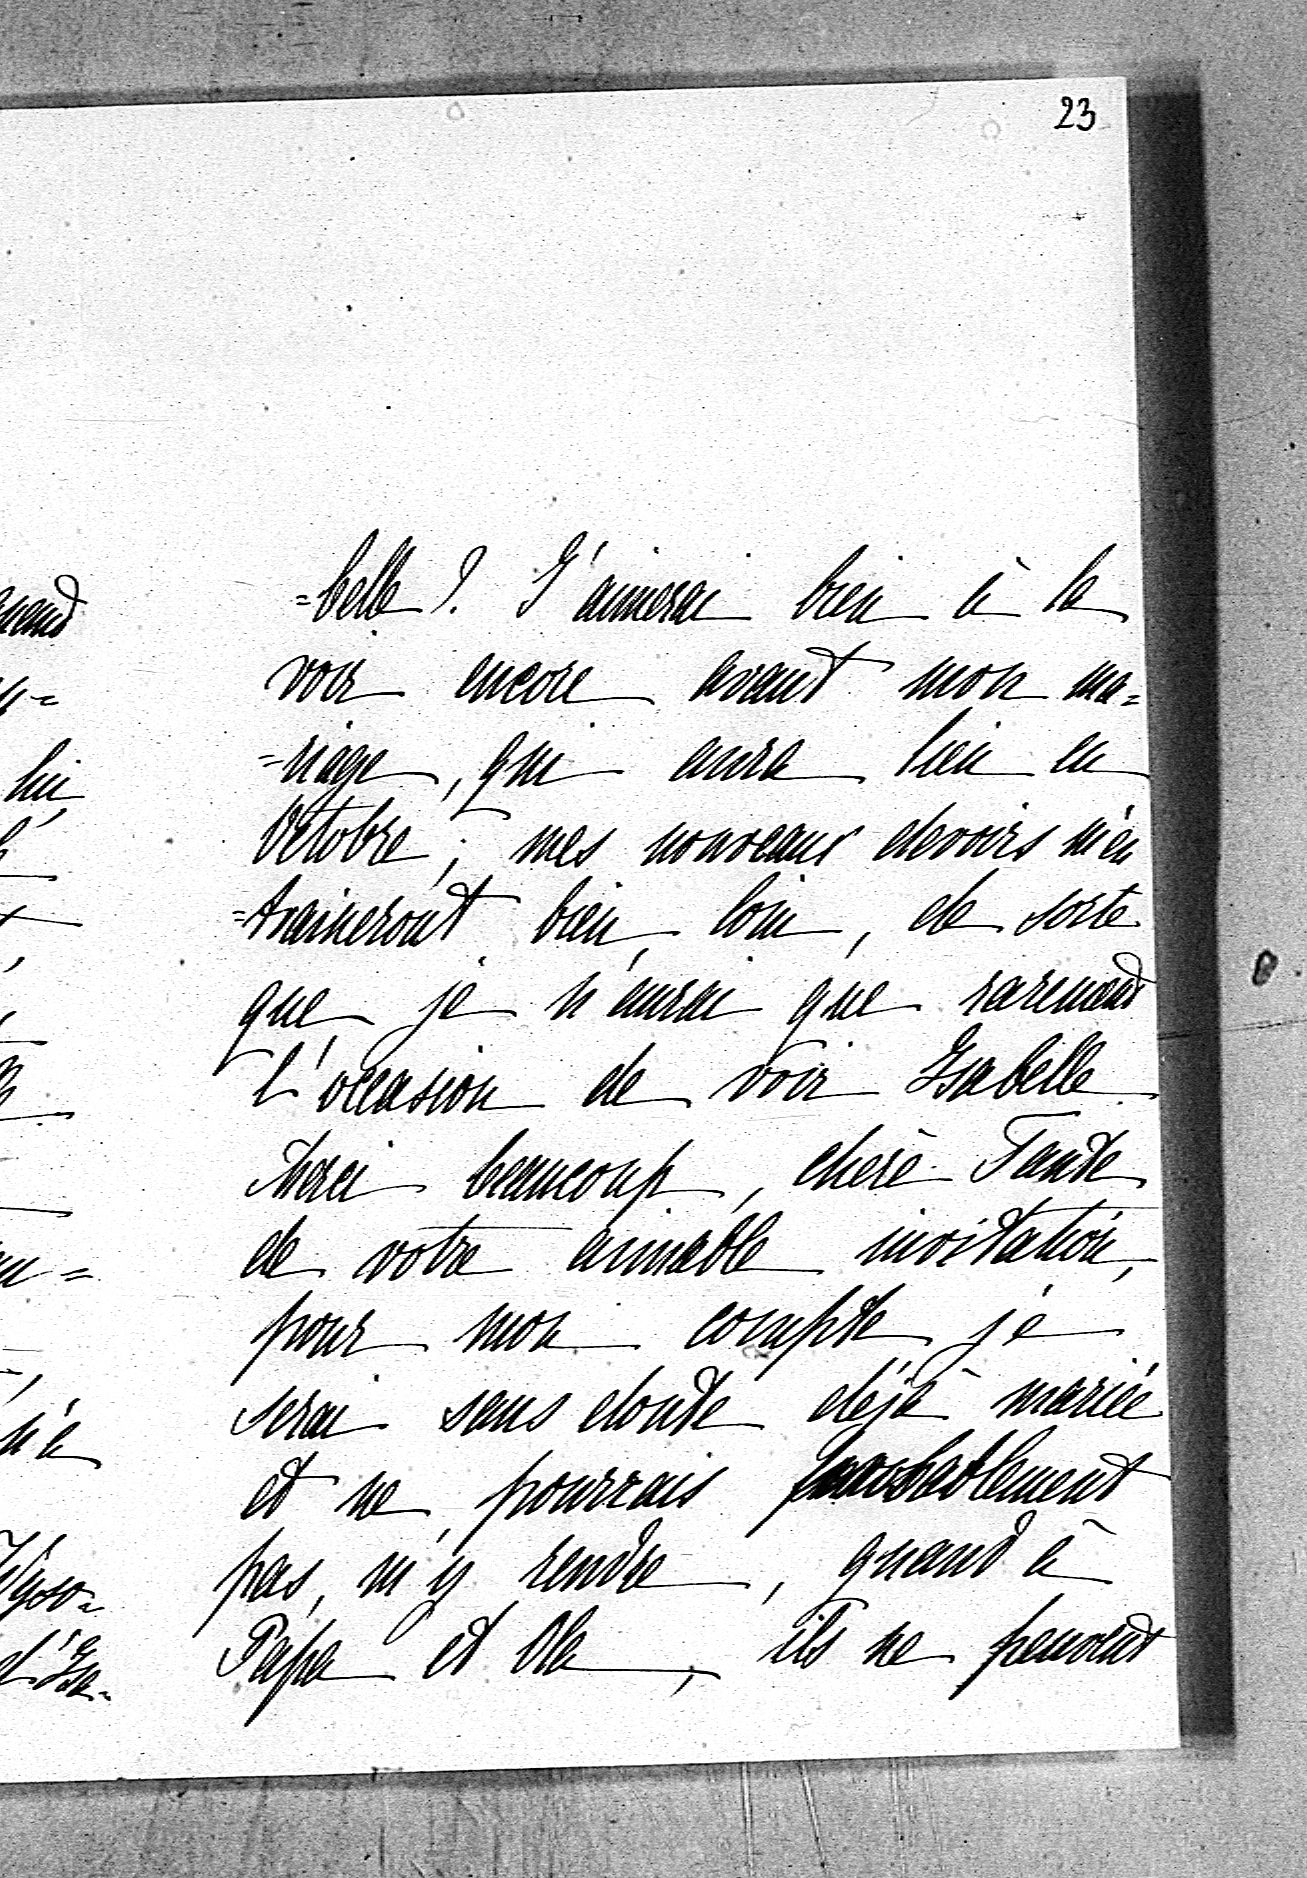 23
=belle ? J'aimerai bien à la
voir encore avant mon ma=
=riage, qui aura lieu en
Octobre ; mes nouveaux devoirs m'en
=traineront bien loin, de sorte
que je n'aurai que rarement
l'occasion de voir Isabelle.
Merci beaucoup, chère Tante
de votre aimable invitation,
pour mon compte je
serai sans doute déjà mariée
et ne pourrais probablement
pas m'y rendre, quand à
Papa et Ola, ils ne peuvent
quand
lui
n'a
d'Isa-